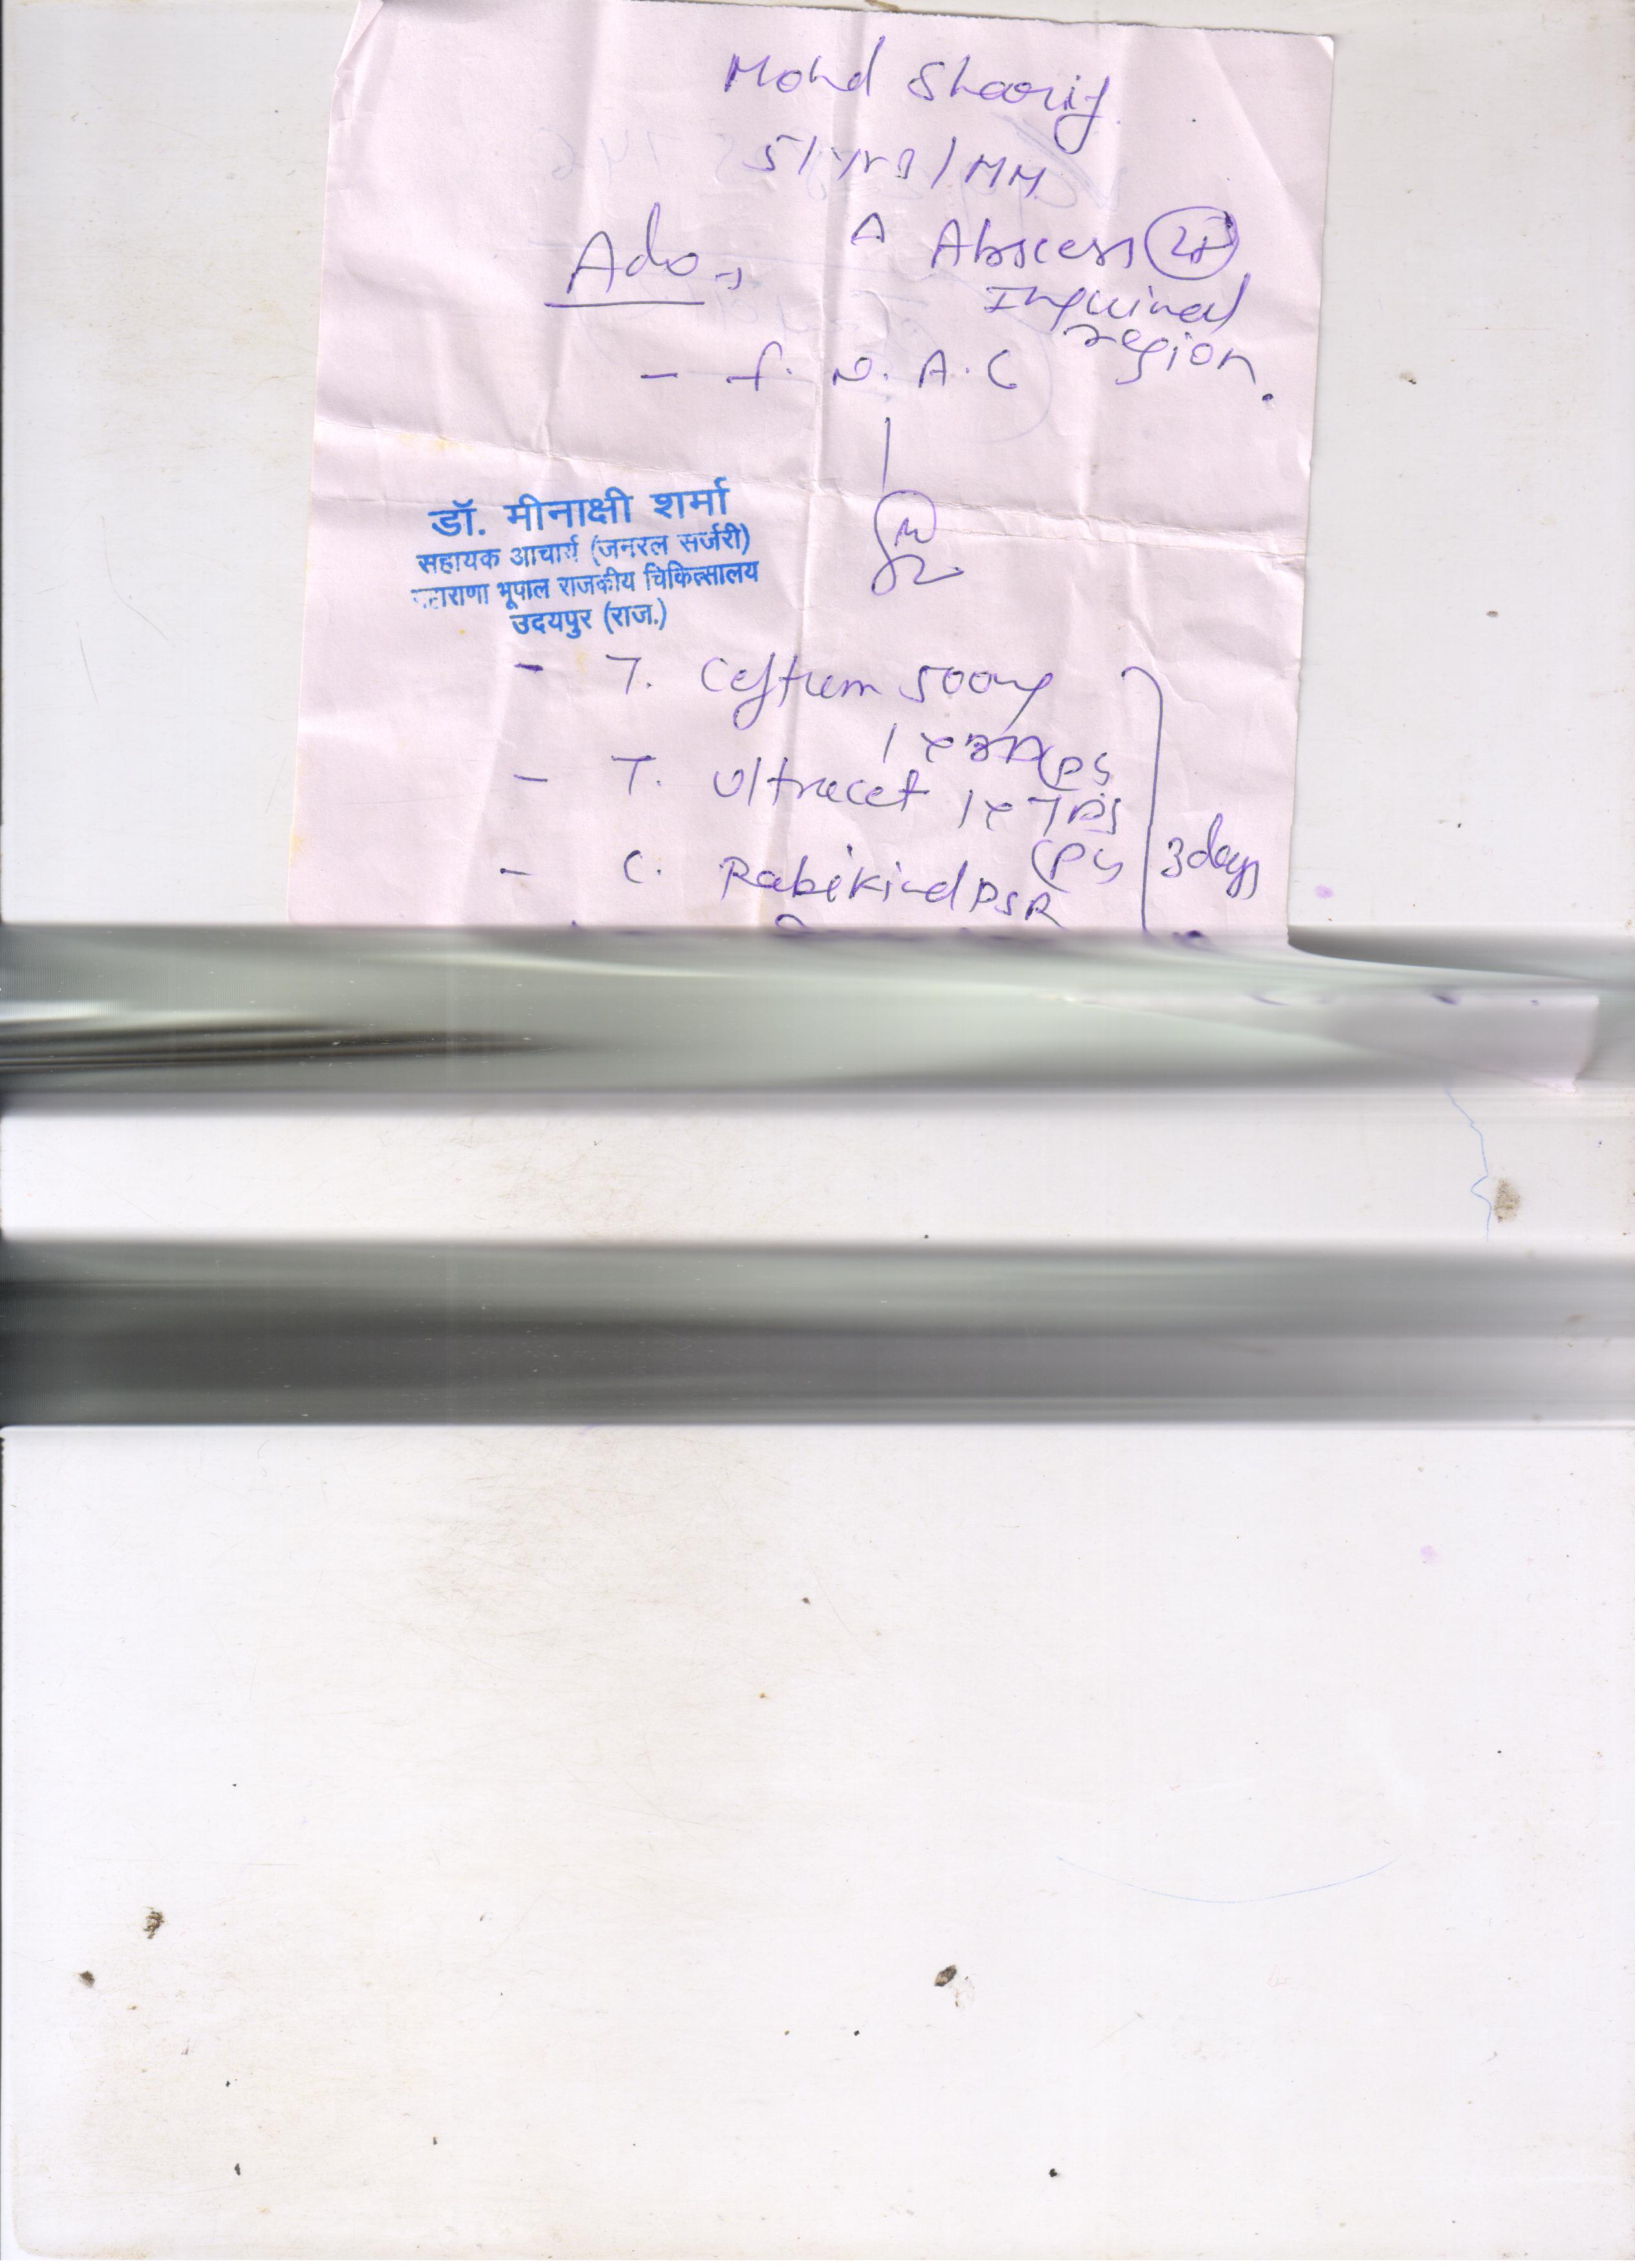 Mohd Sharif
51 yrs / MM
Adv A Abscess Lt
Inguinal
region.
- F. N. A. C
डॉ. मीनाक्षी शर्मा
सहायक आचार्य (जनरल सर्जरी)
महाराणा भूपाल राजकीय चिकित्सालय
उदयपुर (राज.)
- T. Ceftum 500mg
1 x
- T. Ultracet 1 x TDS
- C. Rabikind DSR
3 days